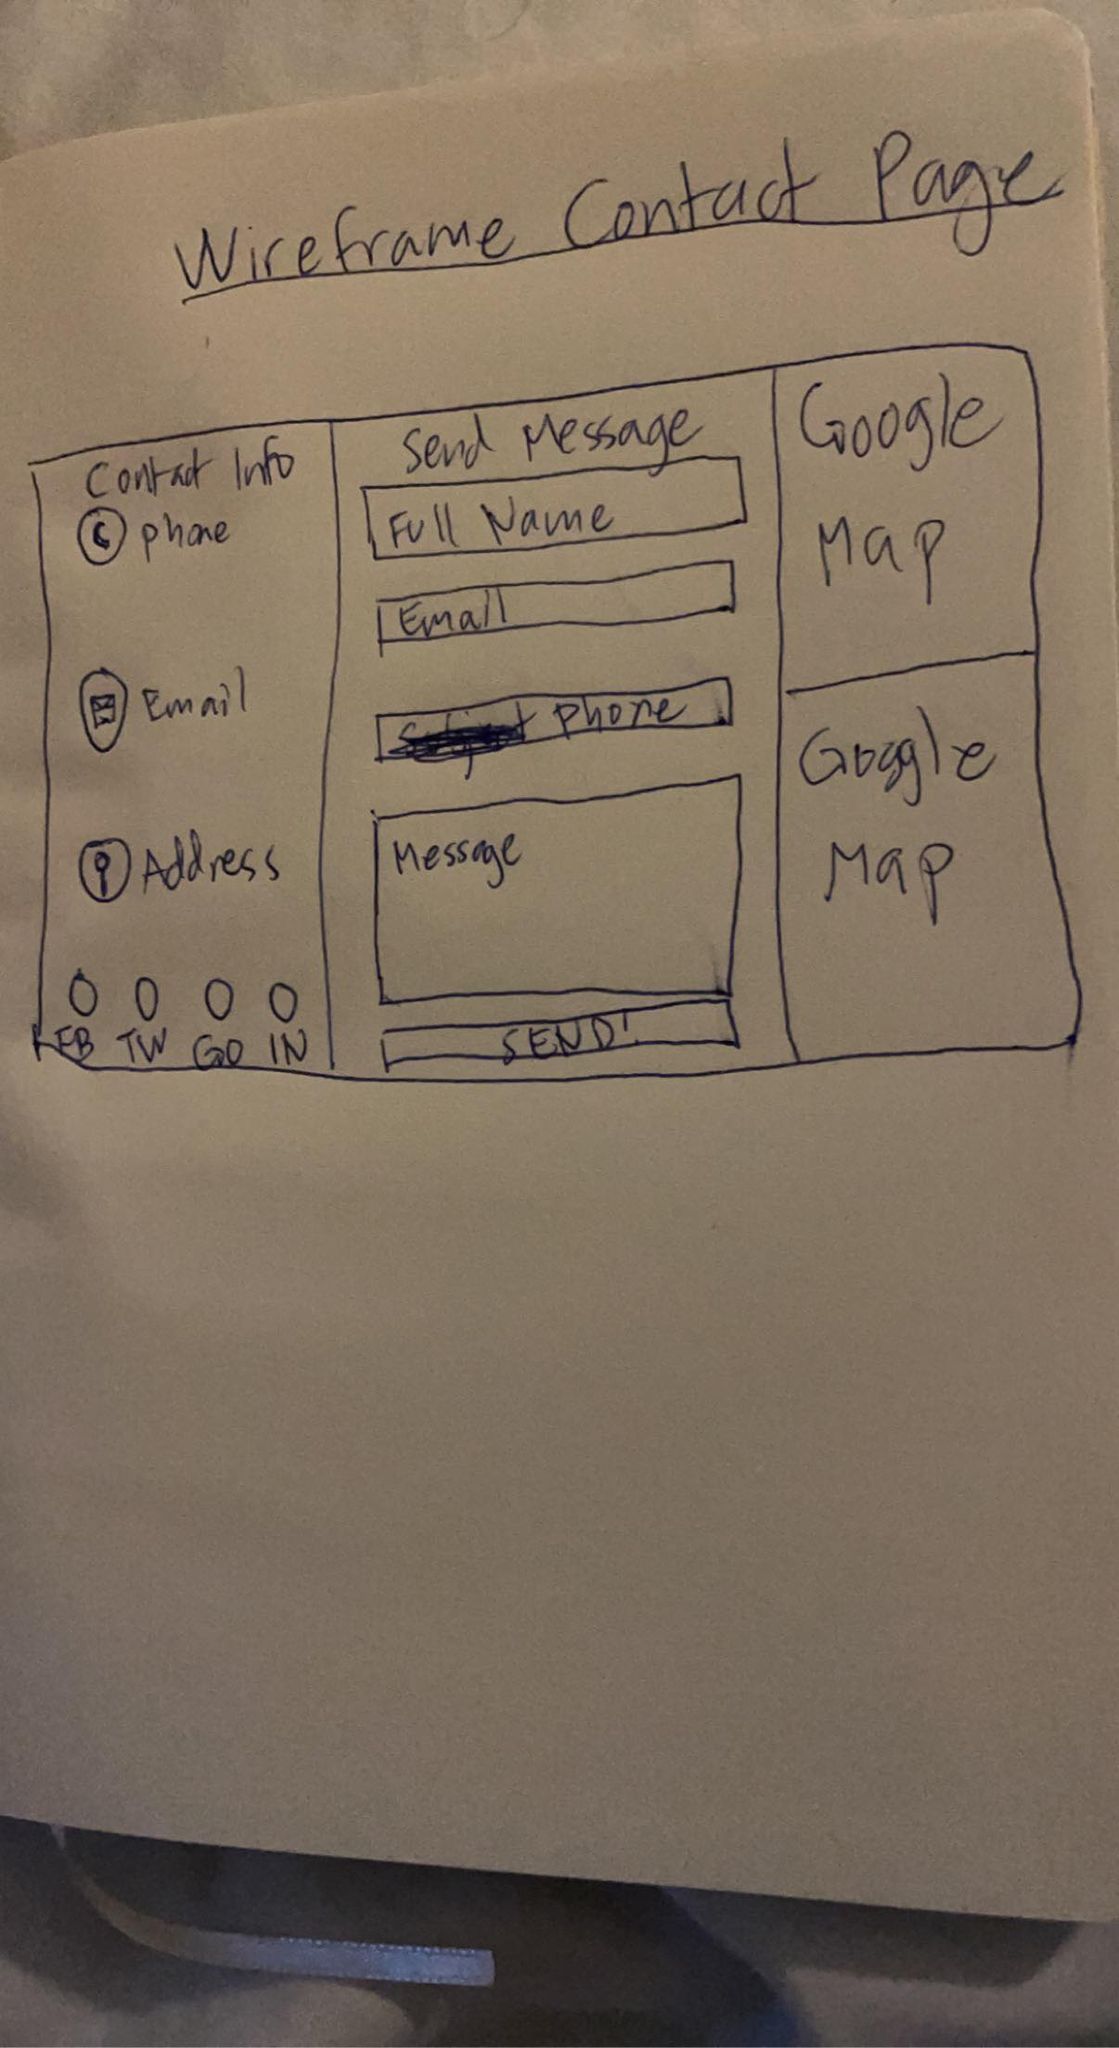 Wireframe Contact Page
Contact Info
phone
Email
Address
FB TW GO IN
Send Message
Full Name
Email
Phone
Message
SEND!
Google
Map
Google
Map